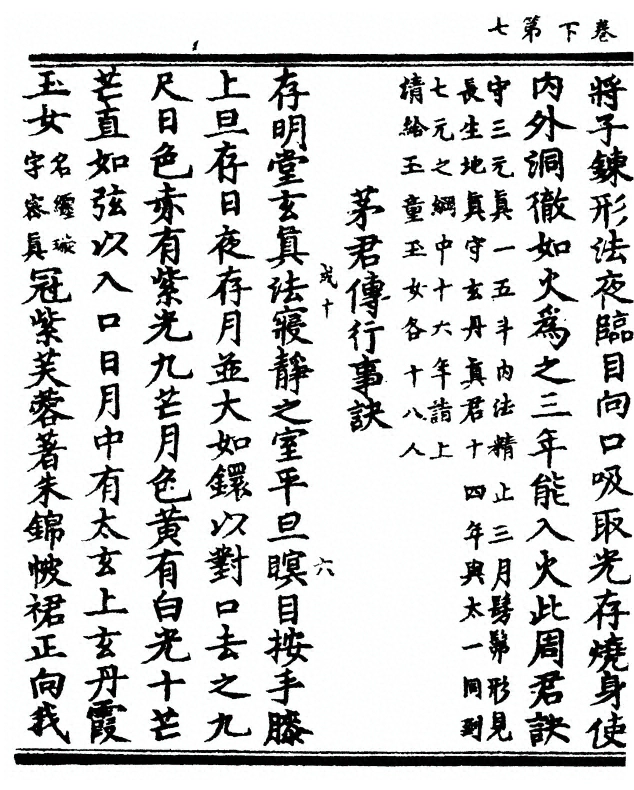 卷下第七
將子鍊形法夜臨目向口吸取光存燒身使
內外洞徹如火爲之三年能入火此周君訣
守三元眞一五斗內法精止三月髣髴形見
長生地眞守玄丹眞君十四年與太一同到
七元之綱中十六年詣上
請給玉童玉女各十八人
茅君傳行事訣
存明堂玄眞法寢靜之室平旦瞑目按手膝
戌十
六
上旦存日夜存月並大如鐶以對口去之九
尺日色赤有紫光九芒月色黃有白光十芒
芒直如弦以入口日月中有太玄上玄丹霞
玉女名纏璇字密眞冠紫芙蓉著朱錦帔裙正向我